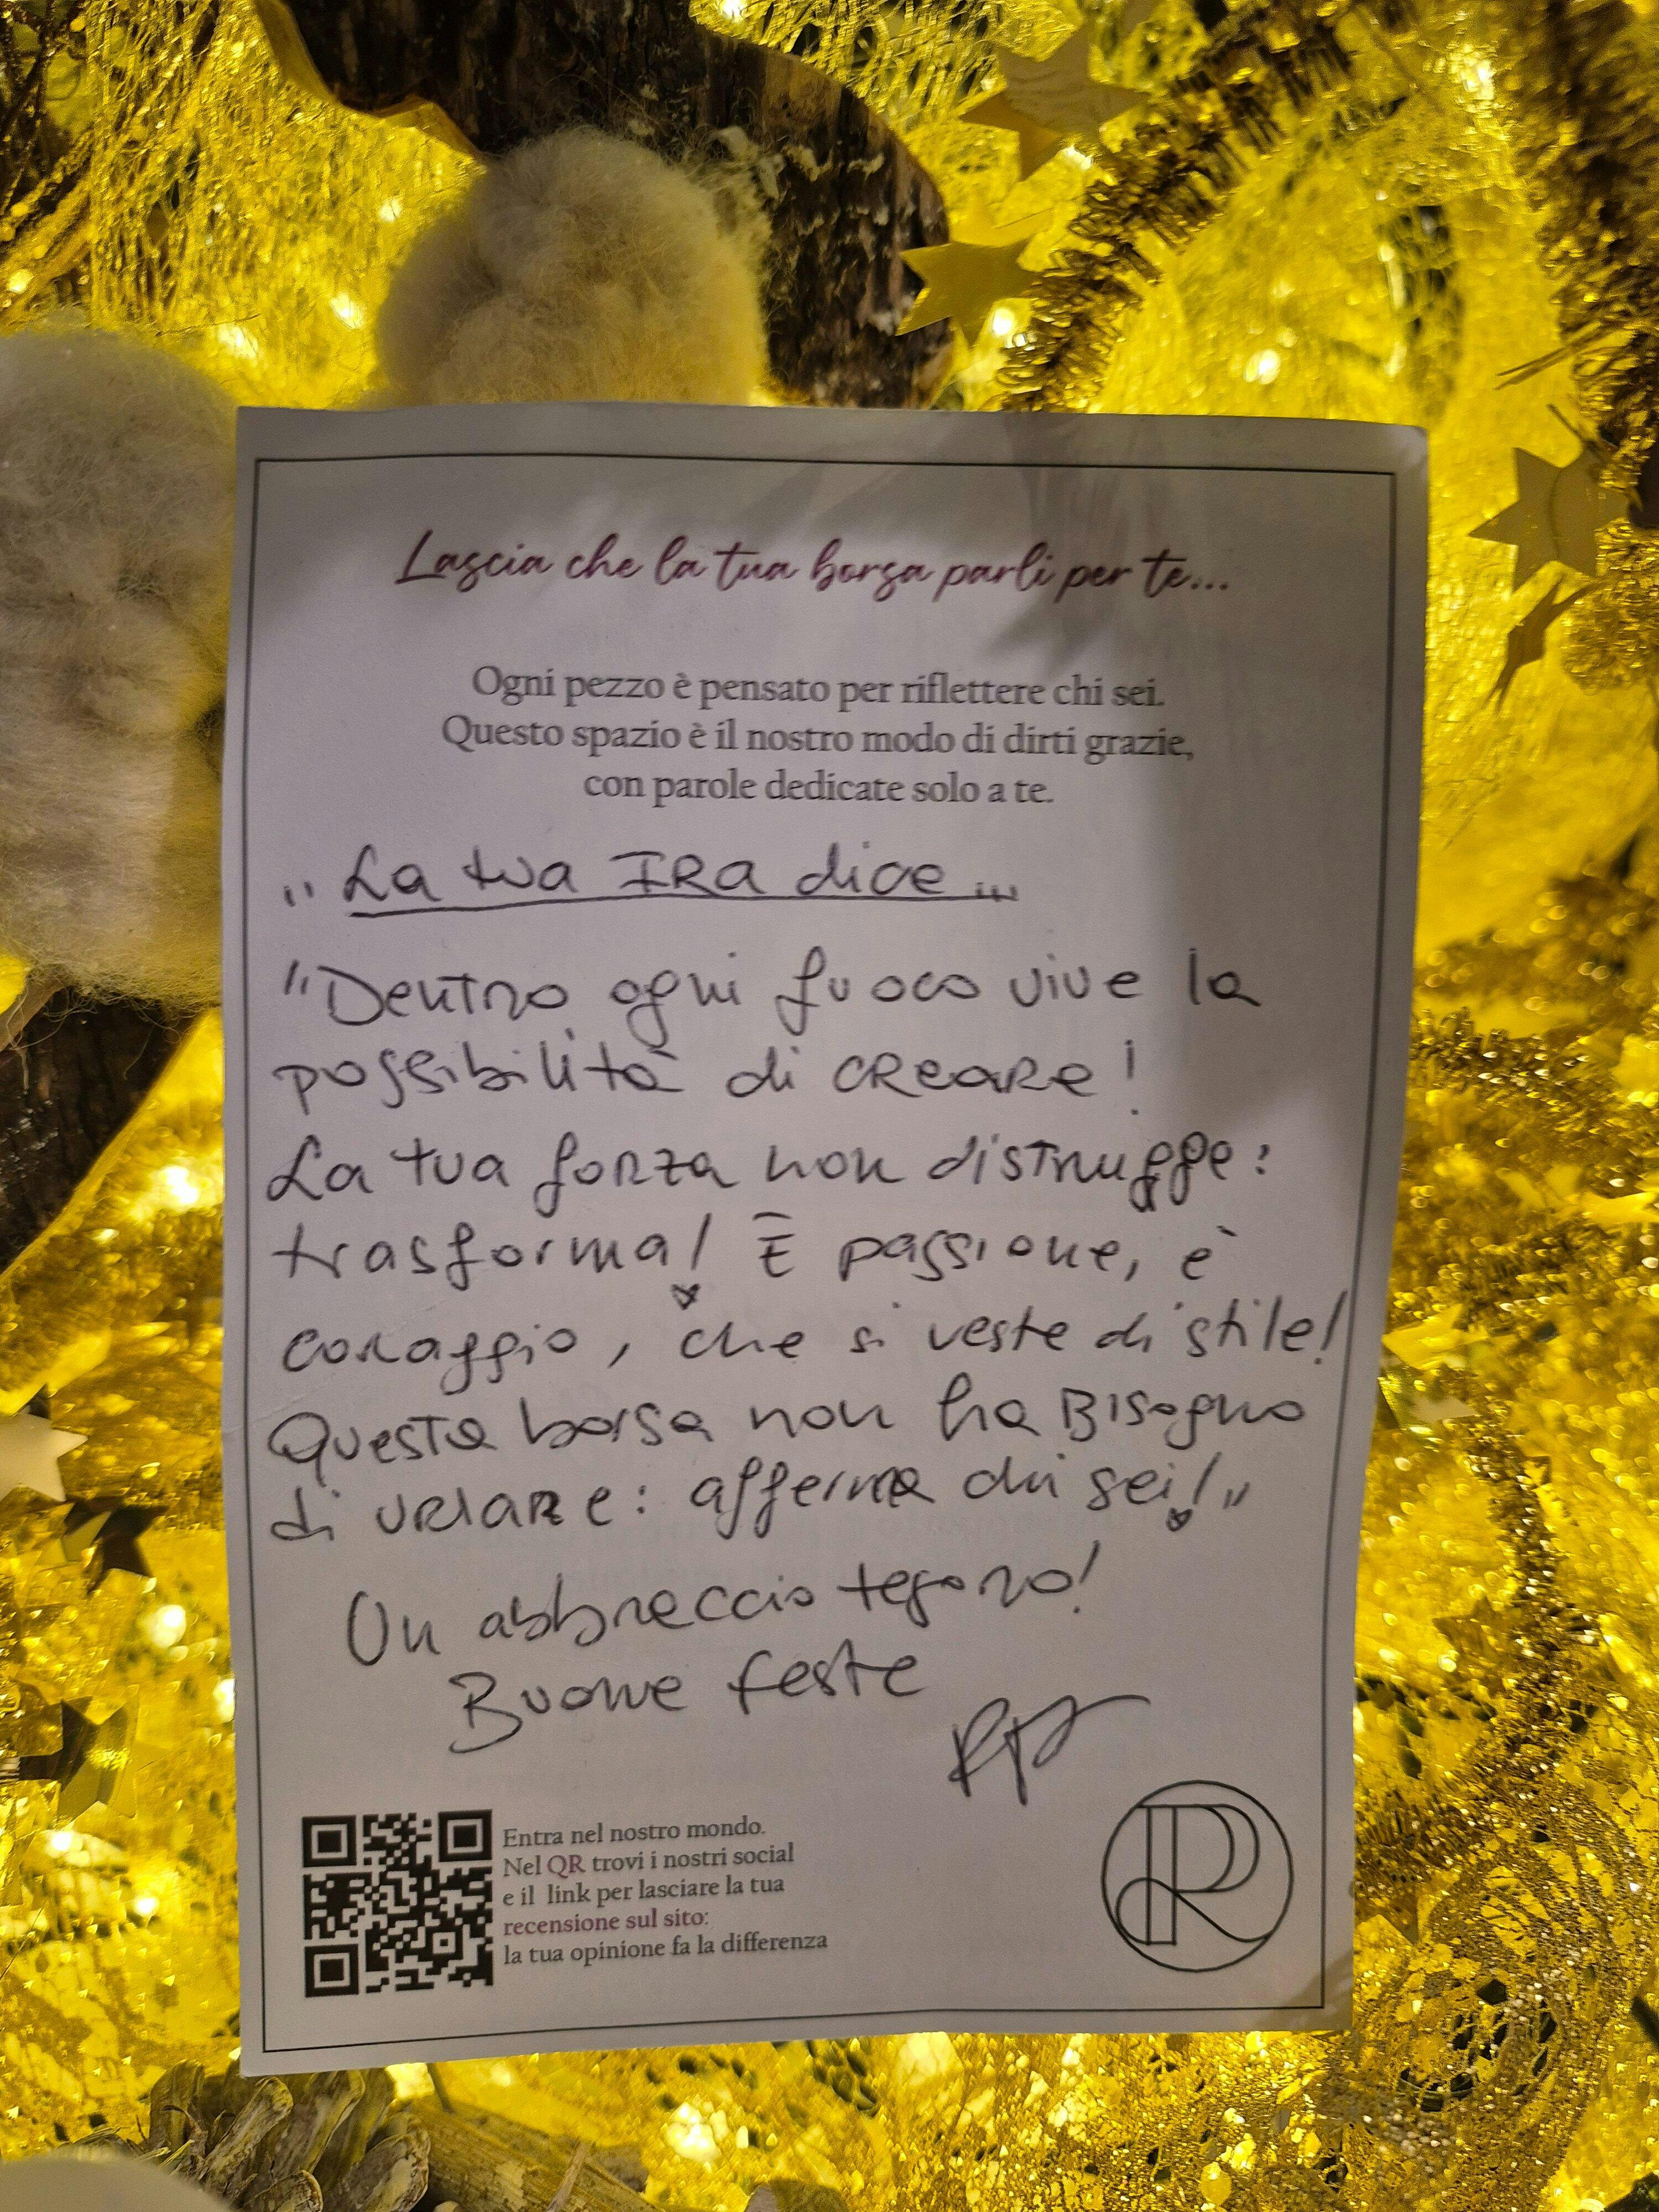 Lascia che la tua borsa parli per te...
Ogni pezzo è pensato per riflettere chi sei.
Questo spazio è il nostro modo di dirti grazie,
con parole dedicate solo a te.
„ La tua IRA dice ...
"Dentro ogni fuoco vive la
possibilità di CREARE!
La tua forza non distrugge:
trasforma! È passione, è
coraggio, che si veste di stile!
Questa borsa non ha Bisogno
di URLARE: afferma chi sei!"
Un abbraccio tesoro!
Buone feste
RP
Entra nel nostro mondo.
Nel QR trovi i nostri social
e il link per lasciare la tua
recensione sul sito:
la tua opinione fa la differenza